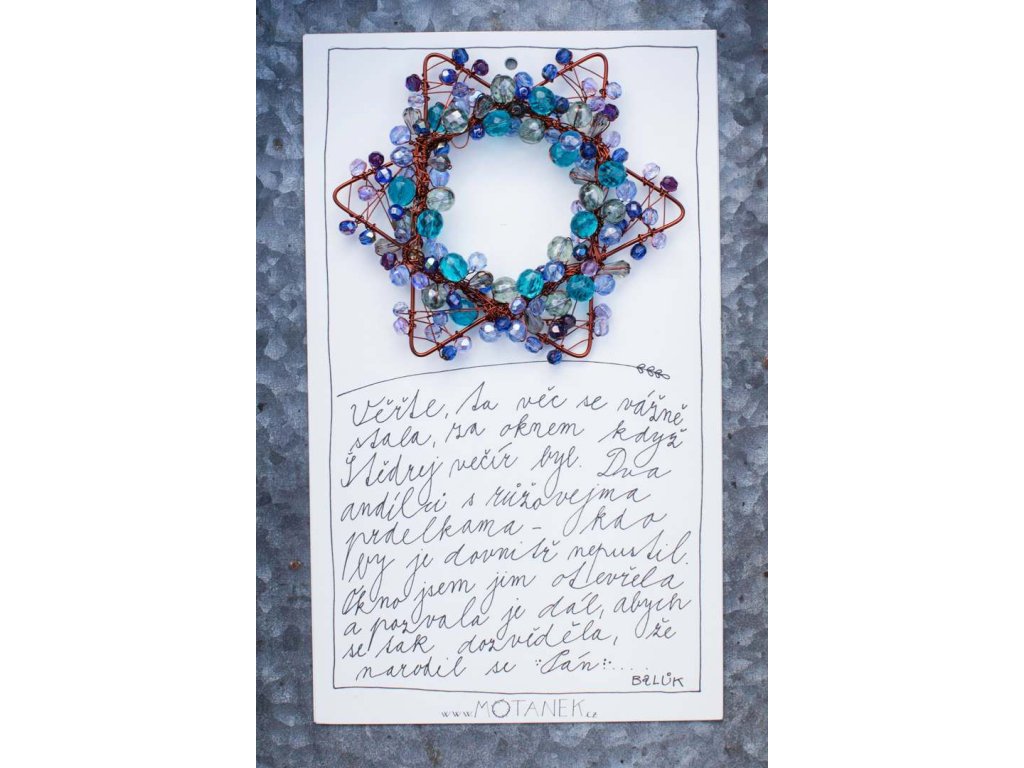 Věřte, ta věc se vážně
stala, za oknem když
Štědrej večír byl. Dva
andílci s růžovejma
prdelkama - kdo
by je dovnitř nepustil.
Okno jsem jim otevřela
a pozvala je dál, abych
se tak dozvěděla, že
narodil se Pán....
BALŮK
www.MOTANEK.cz